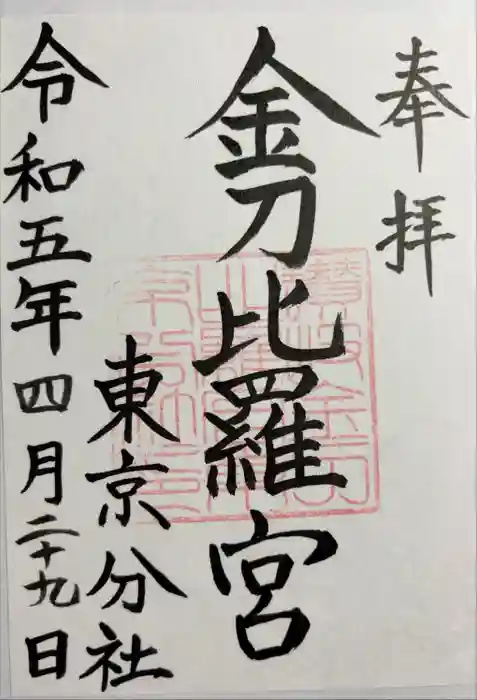 奉拝
金刀比羅宮
東京分社
令和五年四月二十九日